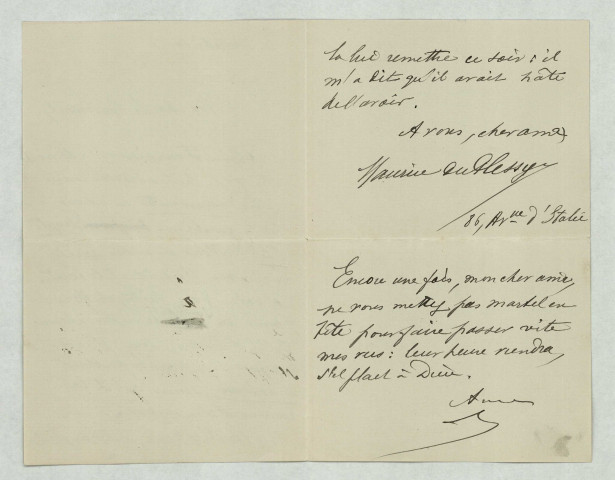 la lui remettre ce soir : il
m'a dit qu'il avait hâte
de l'avoir.
A vous, cher ami,
Maurice du Plessys
86, Avue d'Italie
Encore une fois, mon cher ami,
ne vous mettez pas martel en
tête pour faire passer vite
mes vers : leur heure viendra,
s'il plait à Dieu.